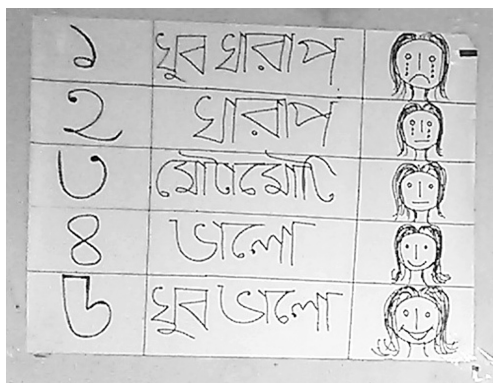 ১ খুব খারাপ
২ খারাপ
৩ মোটামোটি
৪ ভালো
৬ খুব ভালো